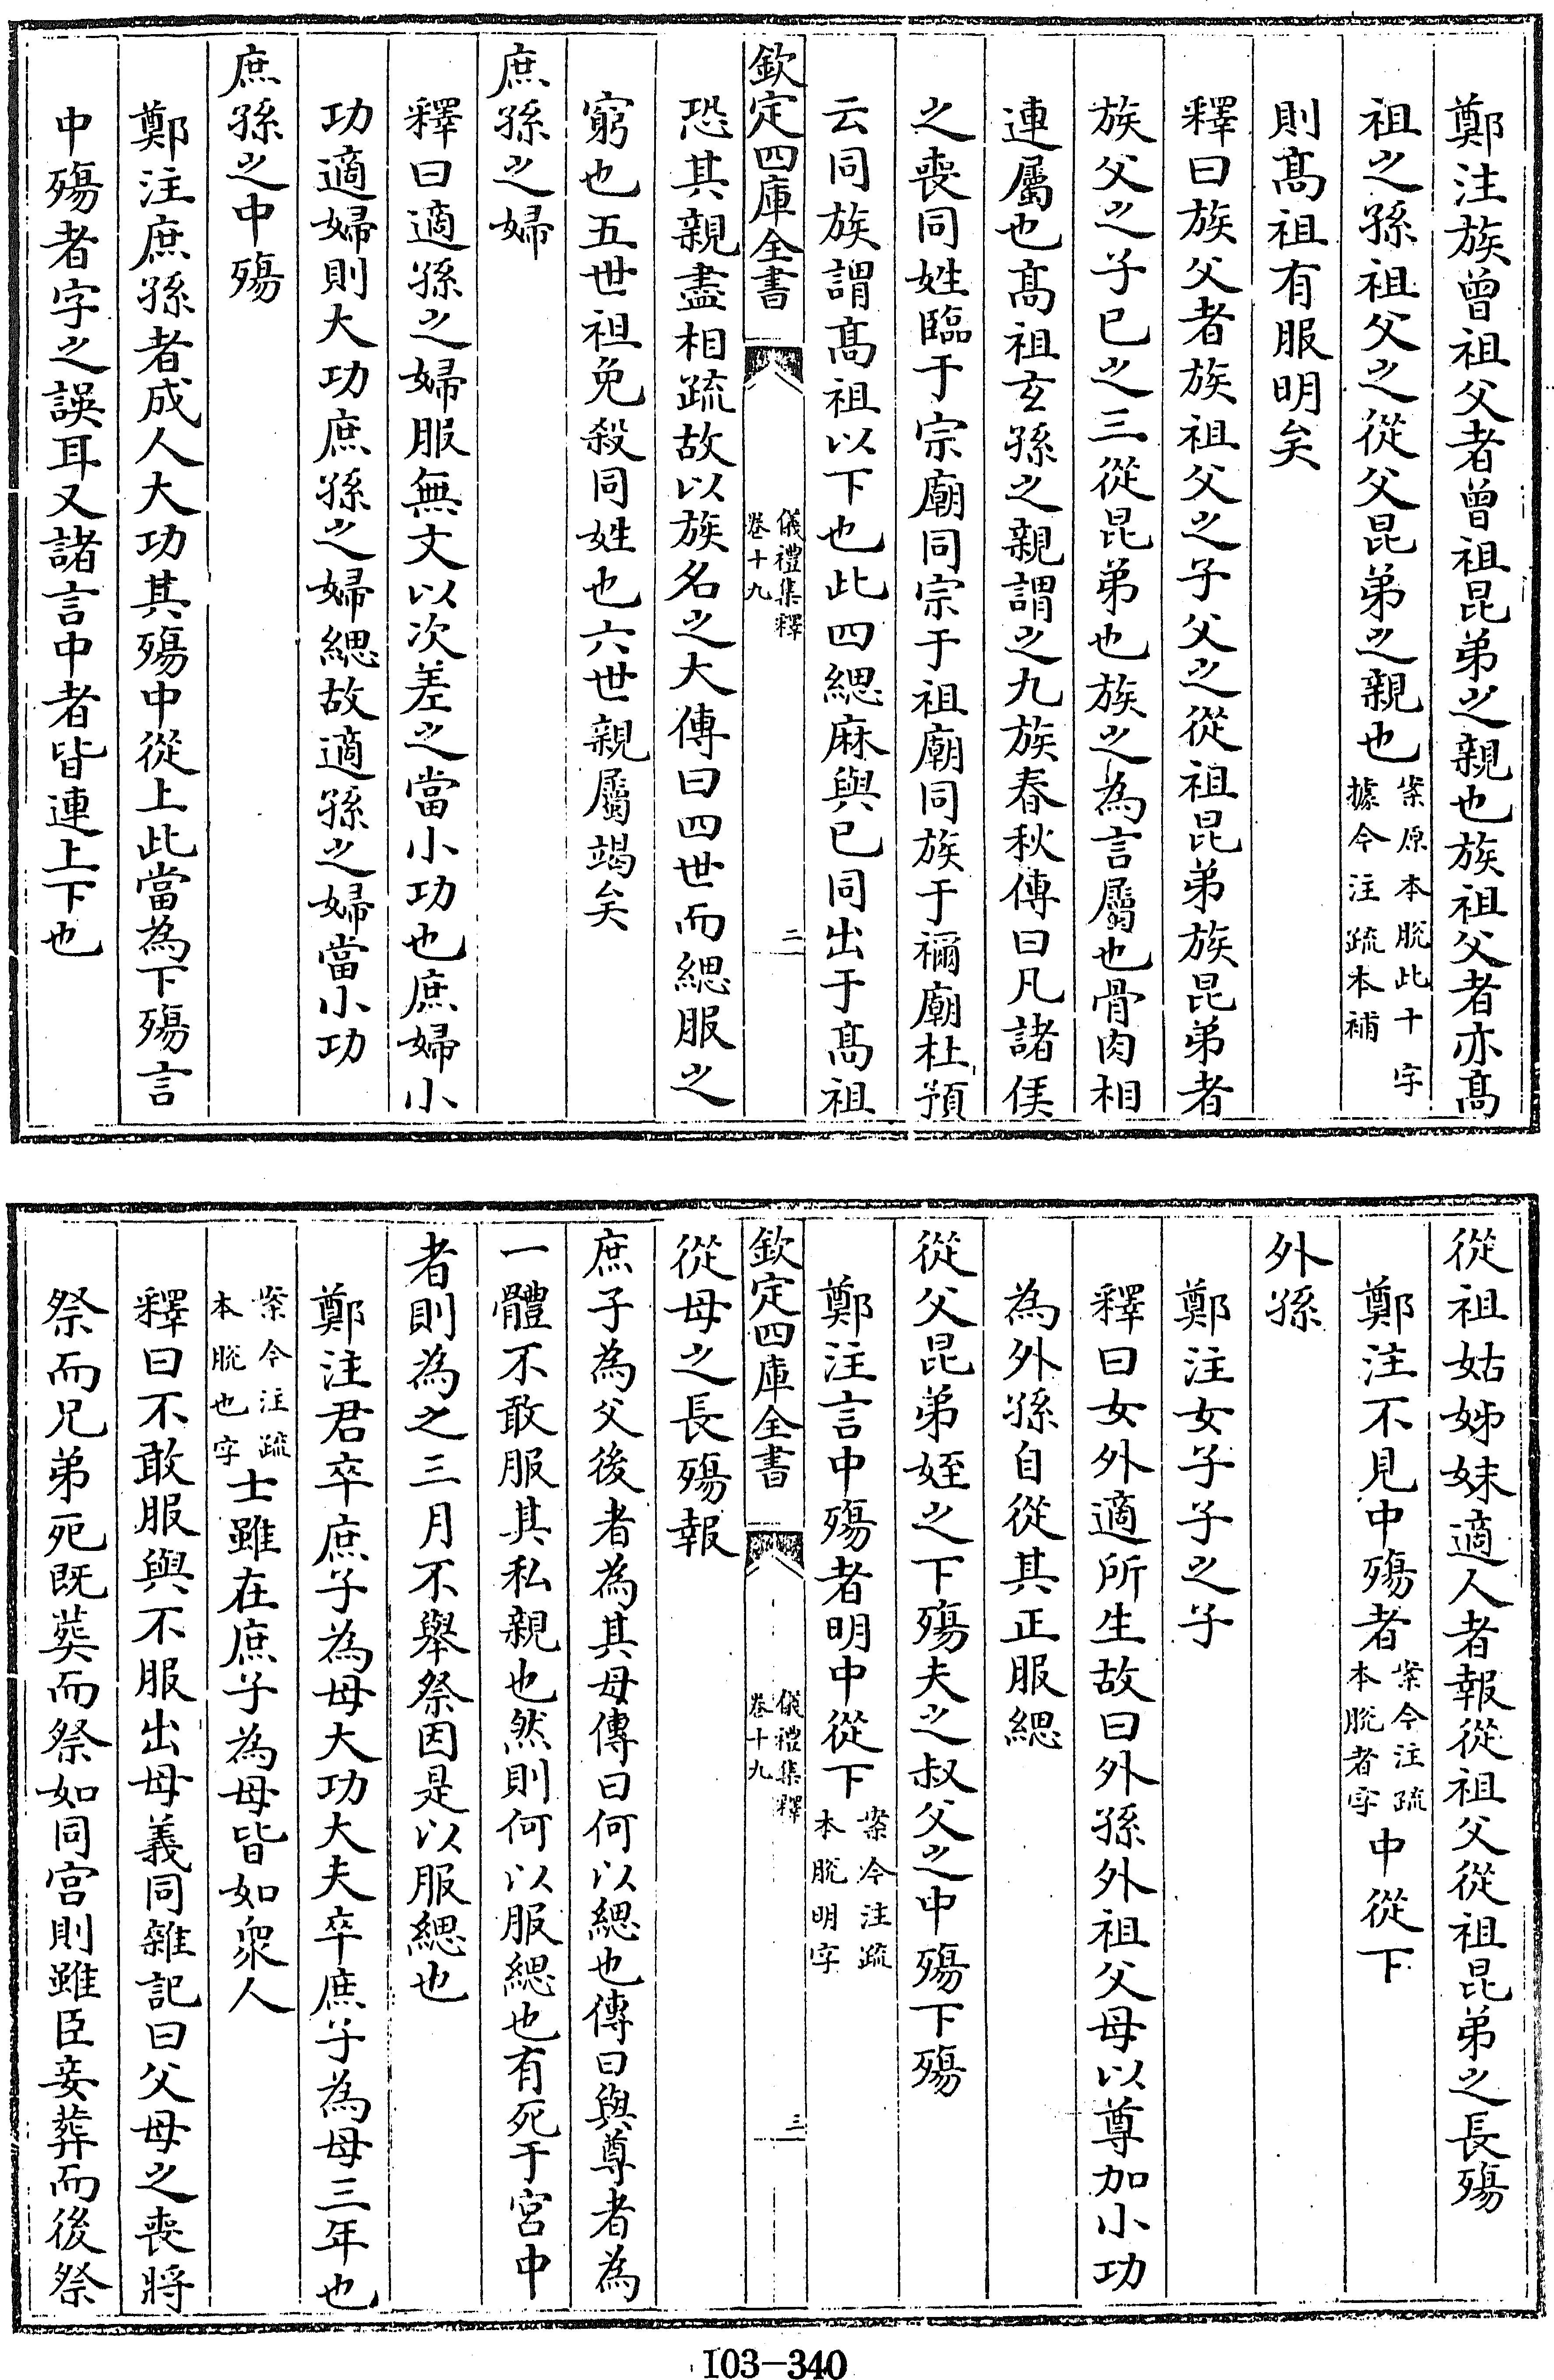 鄭注族曾祖父者曾祖昆弟之親也族祖父者亦髙
祖之孫祖父之從父昆弟之親也案原本脫此十字據今注疏本補
則髙祖有服明矣
釋曰族父者族祖父之子父之從祖昆弟族昆弟者
族父之子已之三從昆弟也族之為言屬也骨肉相
連屬也髙祖玄孫之親謂之九族春秋傳曰凡諸侯
之喪同姓臨于宗廟同宗于祖廟同族于禰廟杜預
云同族謂髙祖以下也此四緦麻與已同出于髙祖
欽定四庫全書
儀禮集釋
卷十九
二
恐其親盡相疏故以族名之大傳曰四世而緦服之
窮也五世袒免殺同姓也六世親屬竭矣
庶孫之婦
釋曰適孫之婦服無文以次差之當小功也庶婦小
功適婦則大功庶孫之婦緦故適孫之婦當小功
庶孫之中殤
鄭注庶孫者成人大功其殤中從上此當為下殤言
中殤者字之誤耳又諸言中者皆連上下也
從祖姑姊妹適人者報從祖父從祖昆弟之長殤
鄭注不見中殤者案今注疏本脫者字中從下
外孫
鄭注女子子之子
釋曰女外適所生故曰外孫外祖父母以尊加小功
為外孫自從其正服緦
從父昆弟姪之下殤夫之叔父之中殤下殤
鄭注言中殤者明中從下案今注疏本脫明字
欽定四庫全書
儀禮集釋
卷十九
三
從母之長殤報
庶子為父後者為其母傳曰何以緦也傳曰與尊者為
一體不敢服其私親也然則何以服緦也有死于宮中
者則為之三月不舉祭因是以服緦也
鄭注君卒庶子為母大功大夫卒庶子為母三年也
案今注疏本脫也字士雖在庶子為母皆如衆人
釋曰不敢服與不服出母義同雜記曰父母之喪將
祭而兄弟死既葬而祭如同宫則雖臣妾葬而後祭
103-340